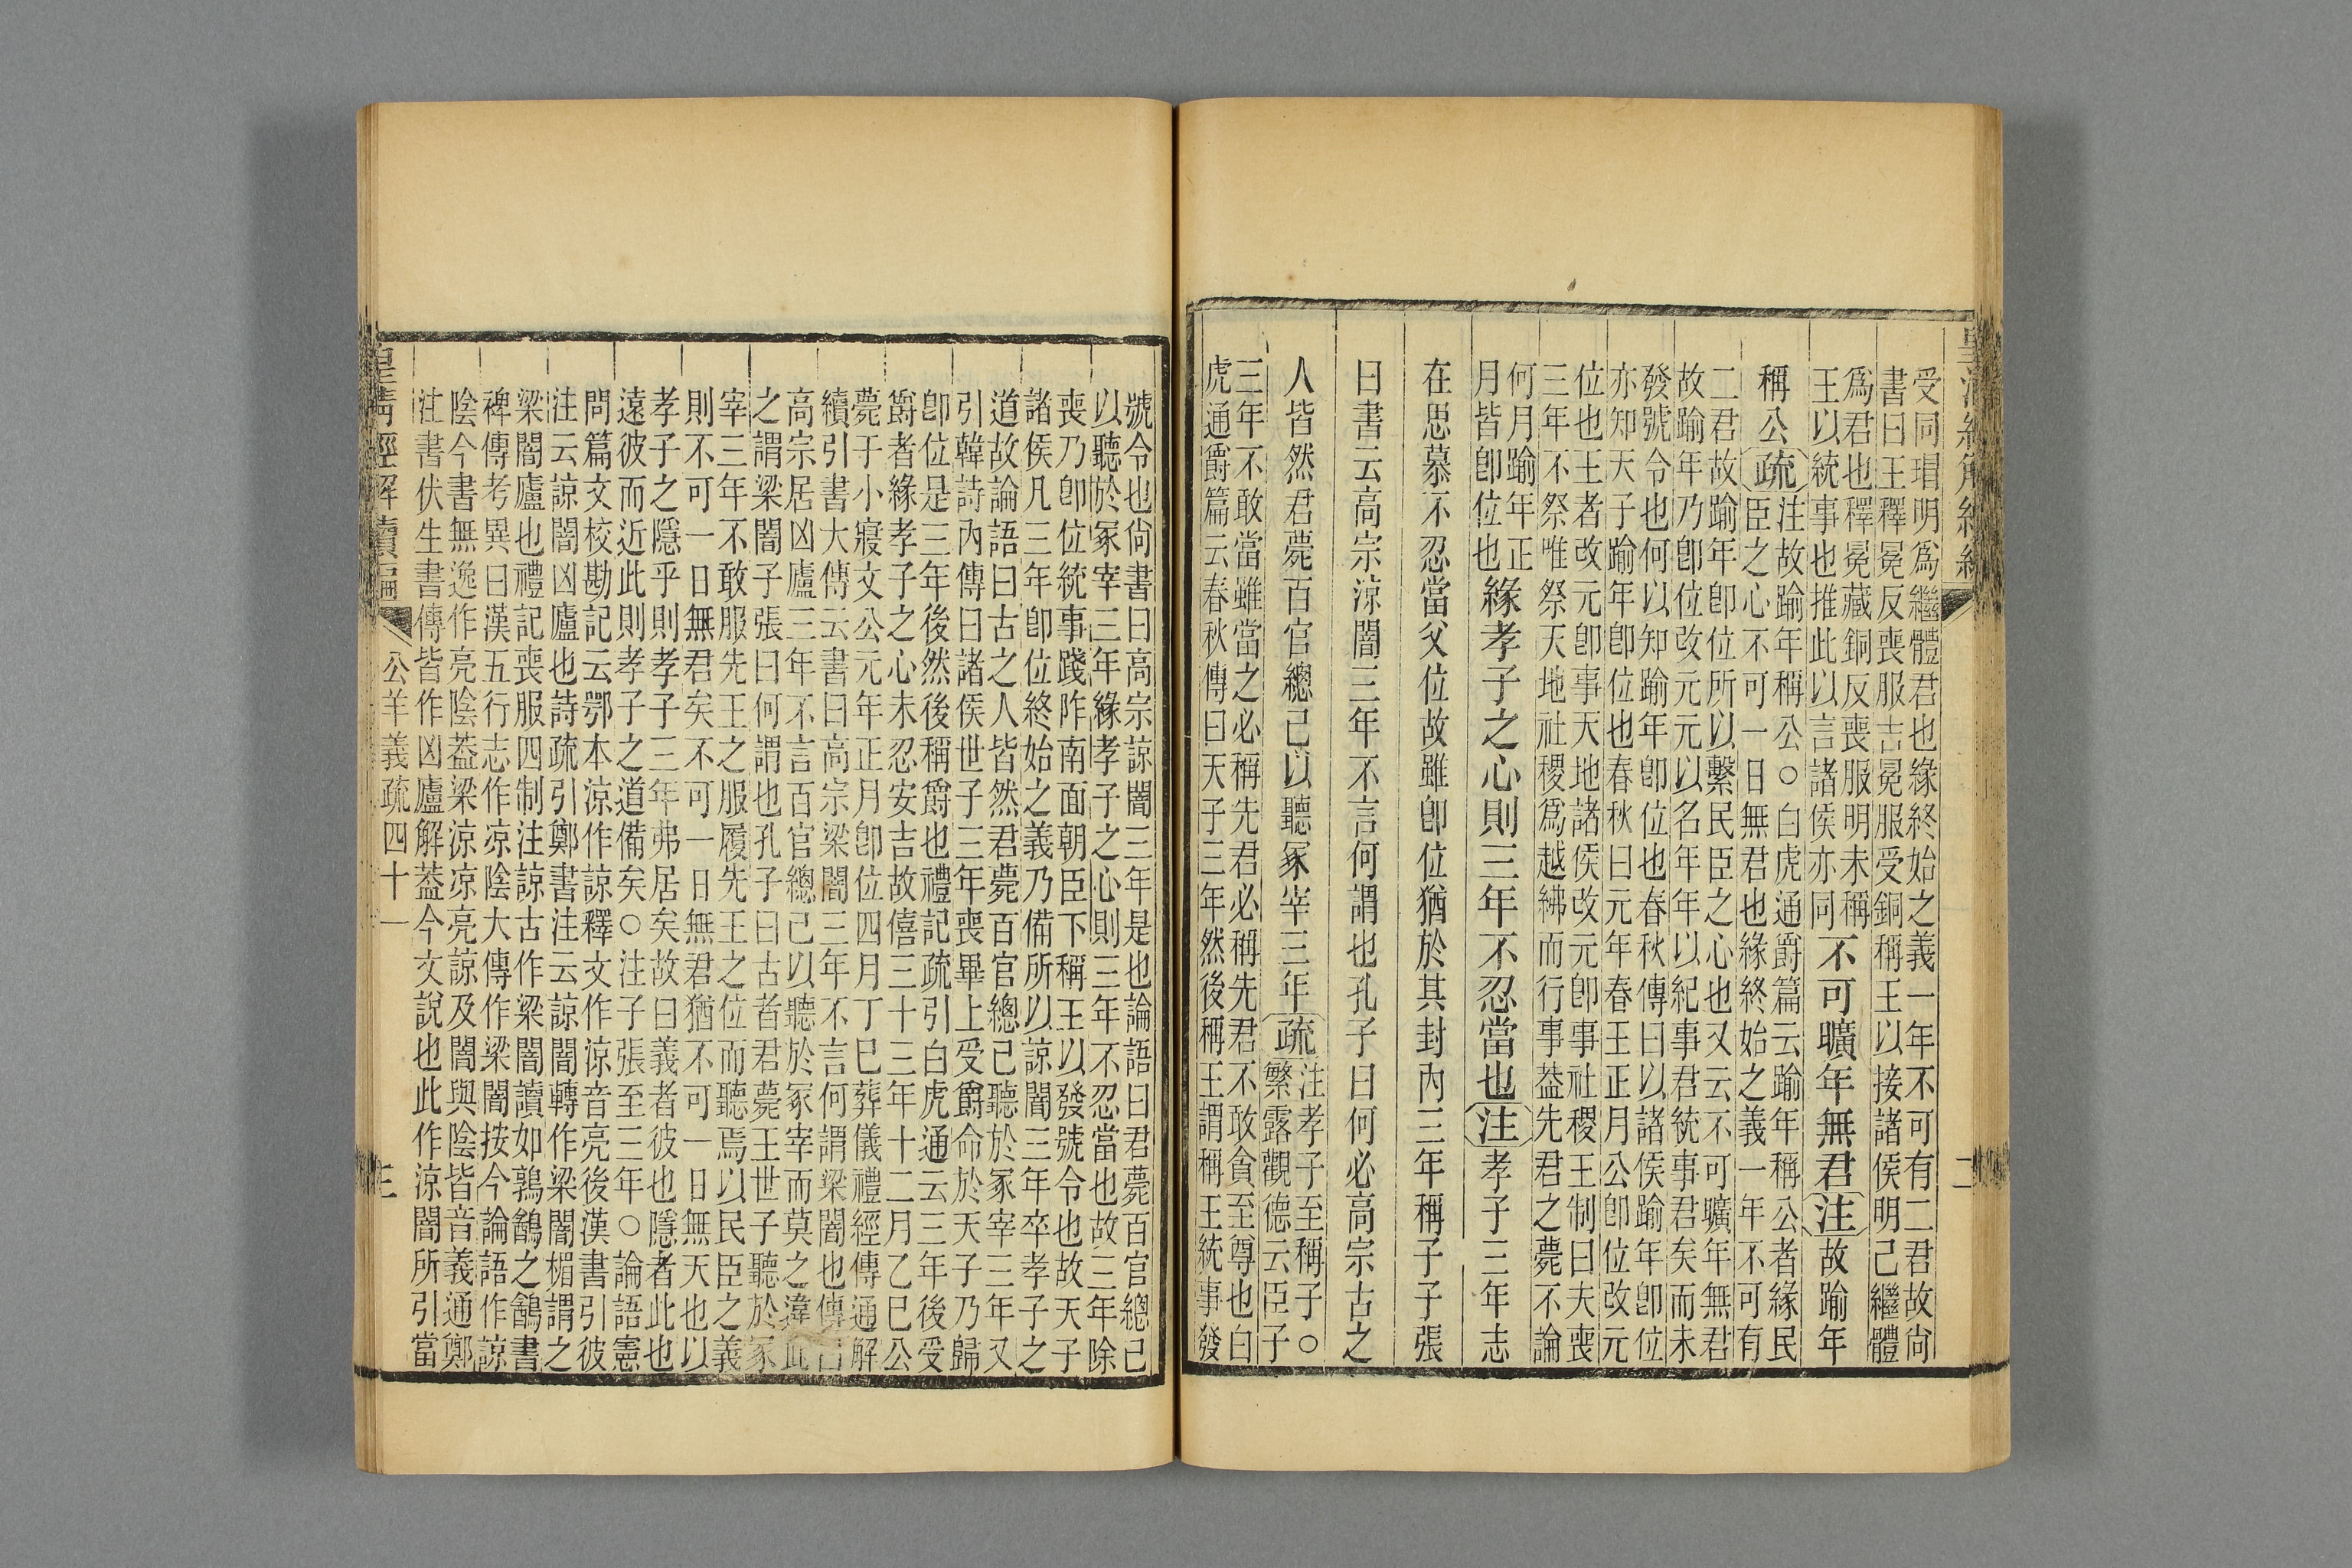 受同瑁明爲繼體君也緣終始之義一年不可有二君故尙
書曰王釋冕反喪服吉冕服受銅稱王以接諸侯明己繼體
爲君也釋冕藏銅反喪服明未稱
王以統事也推此以言諸侯亦同
不可曠年無君注故踰年
稱公疏
注故踰年稱公○白虎通爵篇云踰年稱公者緣民
臣之心不可一日無君也緣終始之義一年不可有
二君故踰年卽位所以繫民臣之心也又云不可曠年無君
故踰年乃卽位改元元以名年年以紀事君統事君矣而未
發號令也何以知踰年卽位也春秋傳曰以諸侯踰年卽位
亦知天子踰年卽位也春秋曰元年春王正月公卽位改元
位也王者改元卽事天地諸侯改元卽事社稷王制曰夫喪
三年不祭唯祭天地社稷爲越紼而行事葢先君之薨不論
何月踰年正
月皆卽位也
緣孝子之心則三年不忍當也注孝子三年志
在思慕不忍當父位故雖卽位猶於其封內三年稱子子張
曰書云高宗涼闇三年不言何謂也孔子曰何必高宗古之
人皆然君薨百官總己以聽冢宰三年疏
注孝子至稱子○
繁露觀德云臣子
三年不敢當雖當之必稱先君必稱先君不敢貪至尊也白
虎通爵篇云春秋傳曰天子三年然後稱王謂稱王統事發
號令也尙書曰高宗諒闇三年是也論語曰君薨百官總己
以聽於冢宰三年緣孝子之心則三年不忍當也故三年除
喪乃卽位統事踐阼南面朝臣下稱王以發號令也故天子
諸侯凡三年卽位終始之義乃備所以諒闇三年卒孝子之
道故論語曰古之人皆然君薨百官總己聽於冢宰三年又
引韓詩內傳曰諸侯世子三年喪畢上受爵命於天子乃歸
卽位是三年後然後稱爵也禮記疏引白虎通云三年後受
爵者緣孝子之心未忍安吉故僖三十三年十二月乙巳公
薨于小寢文公元年正月卽位四月丁巳葬儀禮經傳通解
續引書大傳云書曰高宗梁闇三年不言何謂梁闇也傳曰
高宗居凶廬三年不言百官總己以聽於冢宰而莫之違此
之謂梁闇子張曰何謂也孔子曰古者君薨王世子聽於冢
宰三年不敢服先王之服履先王之位而聽焉以民臣之義
則不可一日無君矣不可一日無君猶不可一日無天也以
孝子之隱乎則孝子三年弗居矣故曰義者彼也隱者此也
遠彼而近此則孝子之道備矣○注子張至三年○論語憲
問篇文校勘記云鄂本涼作諒釋文作涼音亮後漢書引彼
注云諒闇凶廬也詩疏引鄭書注云諒闇轉作梁闇楣謂之
梁闇廬也禮記喪服四制注諒古作梁闇讀如鶉鷂之鷂書
裨傳考異曰漢五行志作凉陰大傳作梁闇按今論語作諒
陰今書無逸作亮陰葢梁涼凉亮諒及闇與陰皆音義通鄭
注書伏生書傳皆作凶廬解葢今文說也此作涼闇所引當
皇淸經解續編
公羊義疏四十一
三